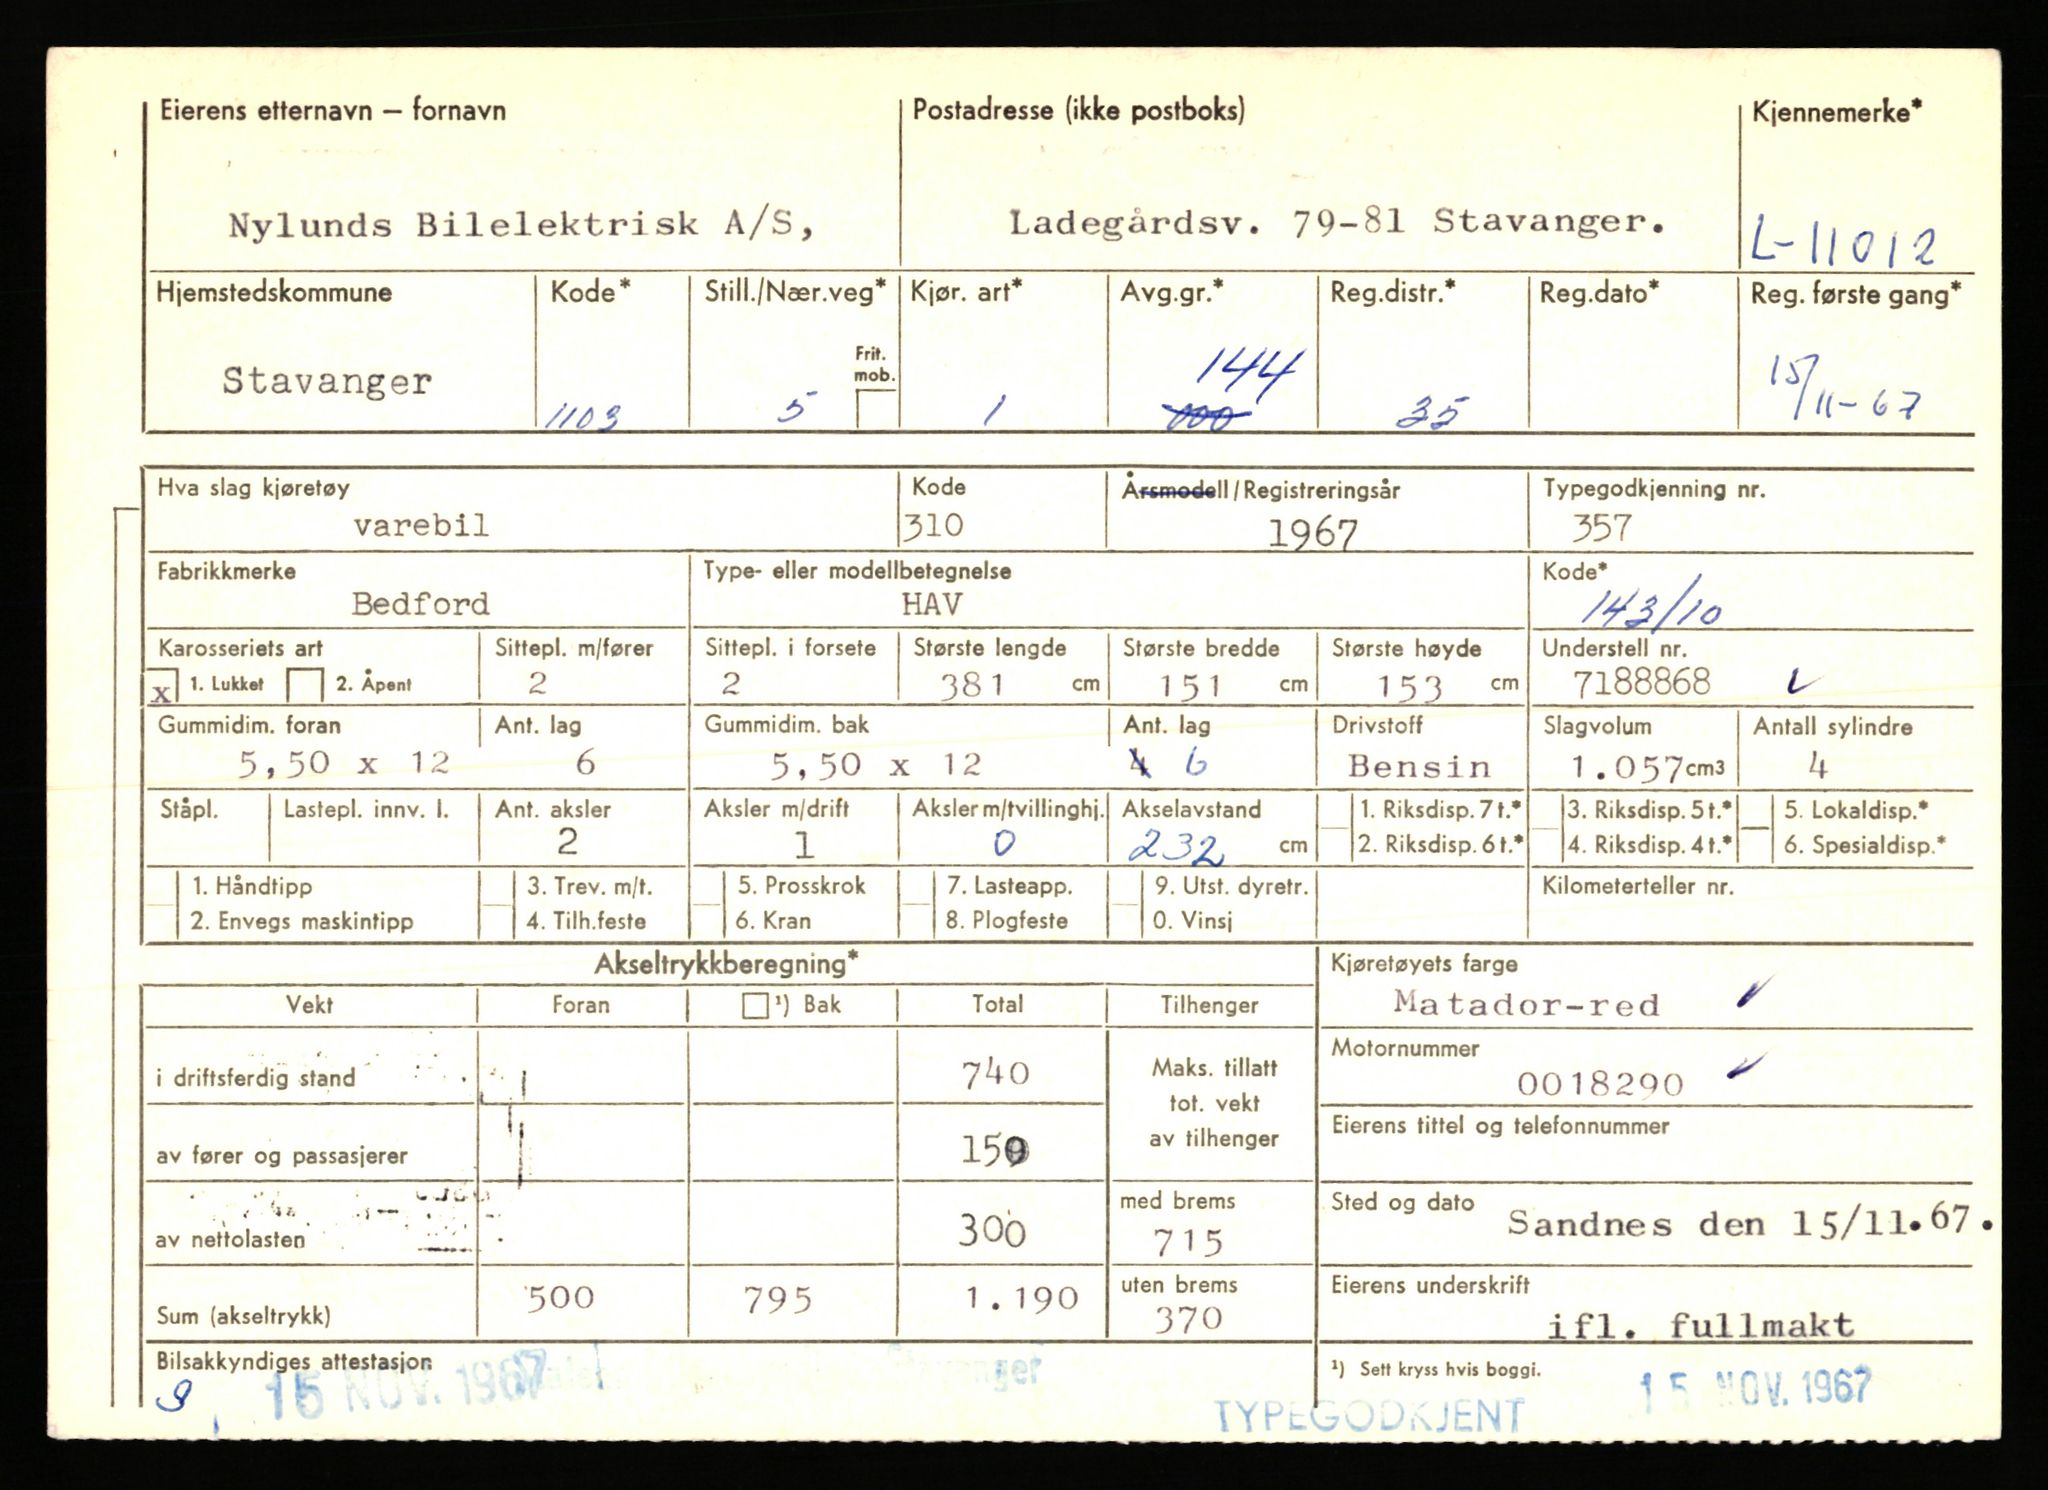 Eierens etternavn – fornavn Postadresse (ikke postboks) Kjennemerke*
Nylunds Bilelektrisk A/S, Ladegårdsv. 79-81 Stavanger. L-11012
Hjemstedskommune Kode* Still./Nær.veg* Kjør. art* Avg.gr.* Reg.distr.* Reg.dato* Reg. første gang*
Frit. mob.
144
Stavanger 1103 5 1 100 35 15/11-67
Hva slag kjøretøy Kode Årsmodell/Registreringsår Typegodkjenning nr.
varebil 310 1967 357
Fabrikkmerke Type- eller modellbetegnelse Kode*
Bedford HAV 143/10
Karosseriets art Sittepl. m/fører Sittepl. i forsete Største lengde Største bredde Største høyde Understell nr.
x 1. Lukket 2. Åpent 2 2 381 cm 151 cm 153 cm 7188868
Gummidim. foran Ant. lag Gummidim. bak Ant. lag Drivstoff Slagvolum Antall sylindre
5,50 x 12 6 5,50 x 12 4 6 Bensin 1.057 cm3 4
Ståpl. Lastepl. innv. l. Ant. aksler Aksler m/drift Aksler m/tvillinghj. Akselavstand 1. Riksdisp. 7 t.* 3. Riksdisp. 5 t.* 5. Lokaldisp.*
2 1 0 232 cm 2. Riksdisp. 6 t.* 4. Riksdisp. 4 t.* 6. Spesialdisp.*
1. Håndtipp 3. Trev. m/t. 5. Prosskrok 7. Lasteapp. 9. Utst. dyretr. Kilometerteller nr.
2. Envegs maskintipp 4. Tilh.feste 6. Kran 8. Plogfeste 0. Vinsj
Akseltrykkberegning* Kjøretøyets farge
Vekt Foran ¹) Bak Total Tilhenger Matador-red
i driftsferdig stand 740 Maks. tillatt tot. vekt av tilhenger Motornummer
0018290
av fører og passasjerer 150 Eierens tittel og telefonnummer
av nettolasten 300 med brems 715 Sted og dato Sandnes den 15/11.67.
Sum (akseltrykk) 500 795 1.190 uten brems 370 Eierens underskrift
ifl. fullmakt
Bilsakkyndiges attestasjon ¹) Sett kryss hvis boggi.
15 NOV. 1967 Stavanger 15 NOV. 1967
TYPEGODKJENT